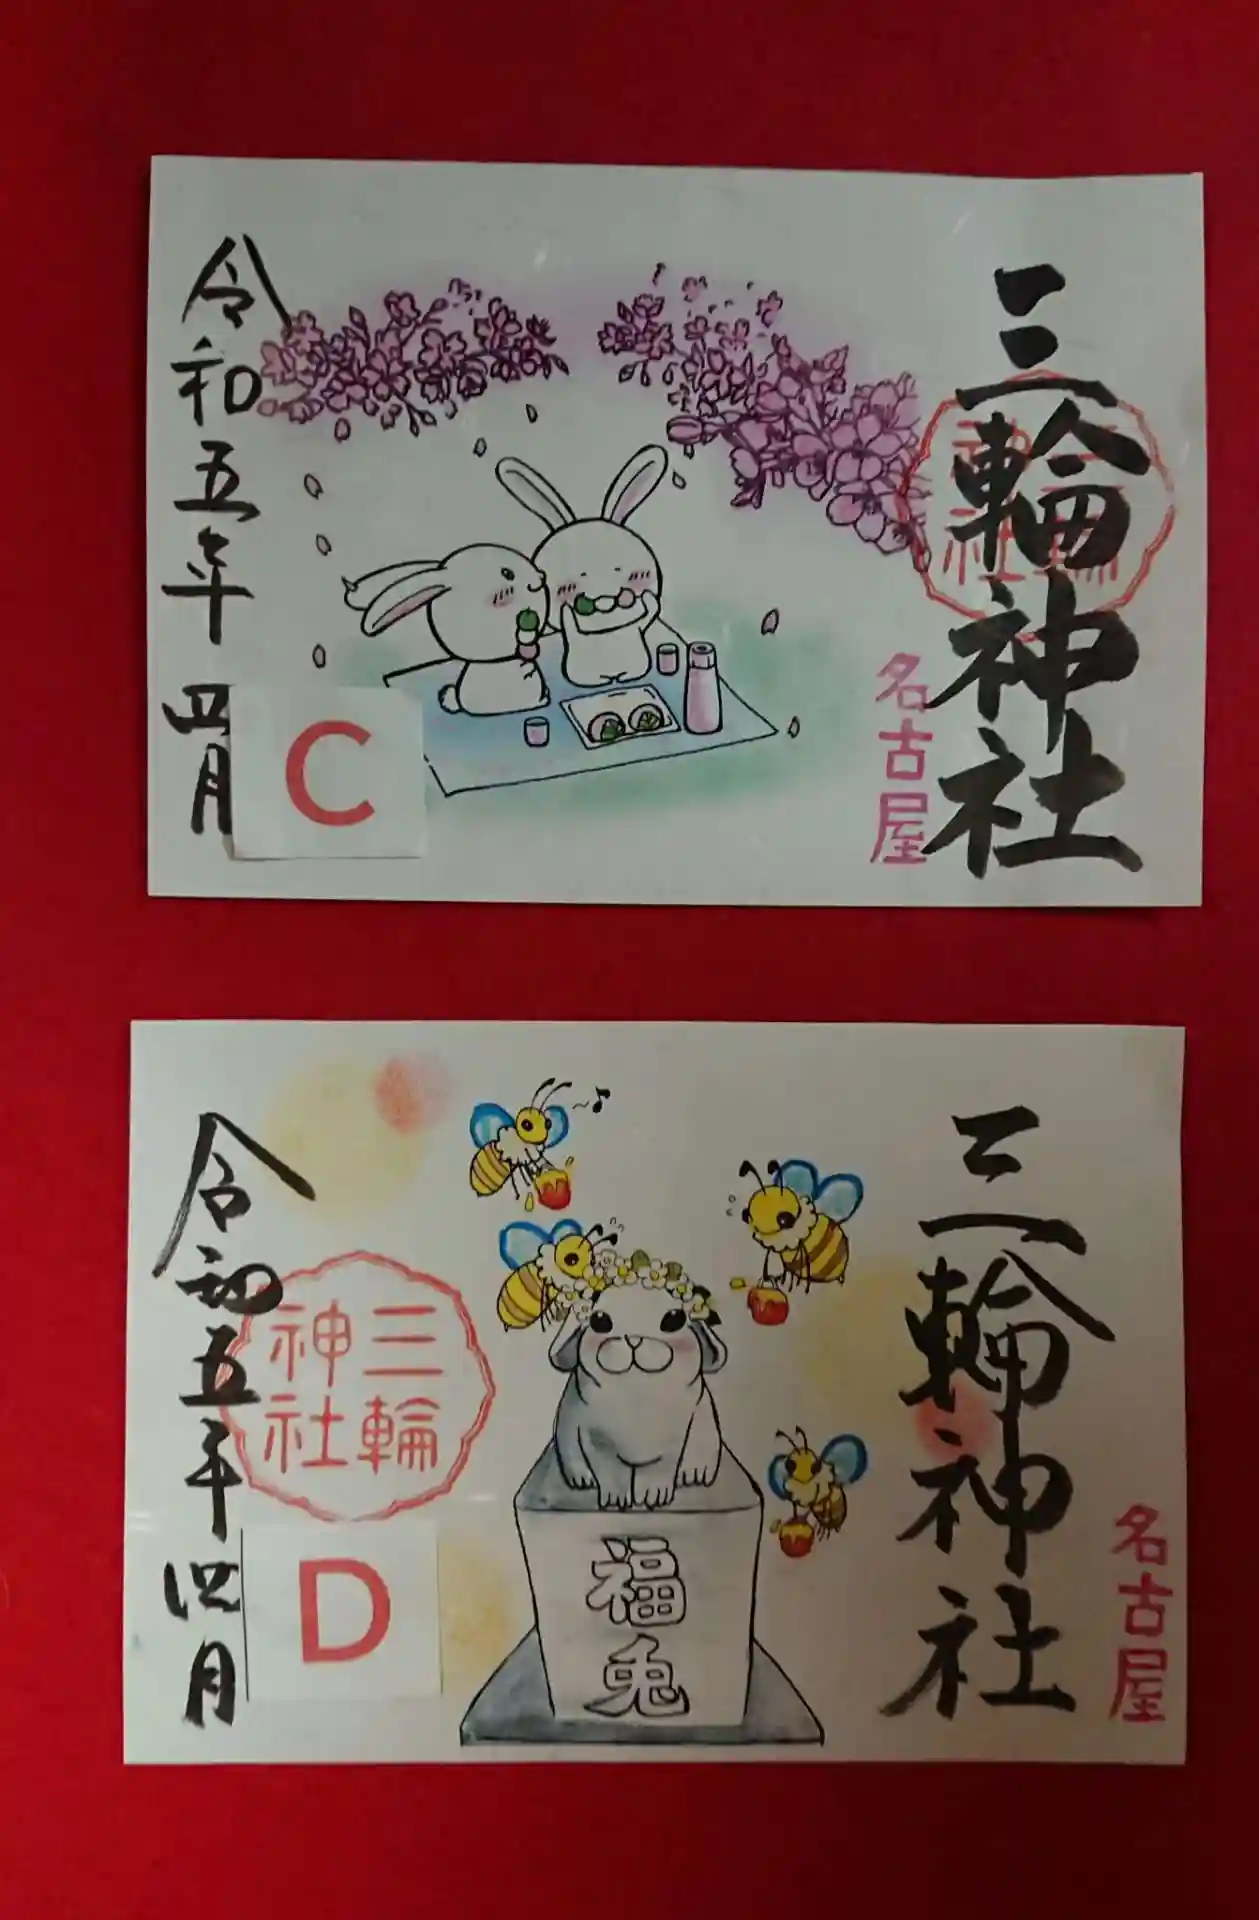 三輪神社
三輪神社
名古屋
令和五年 四月
C
三輪神社
名古屋
福兎
三輪神社
令和五年 四月
D